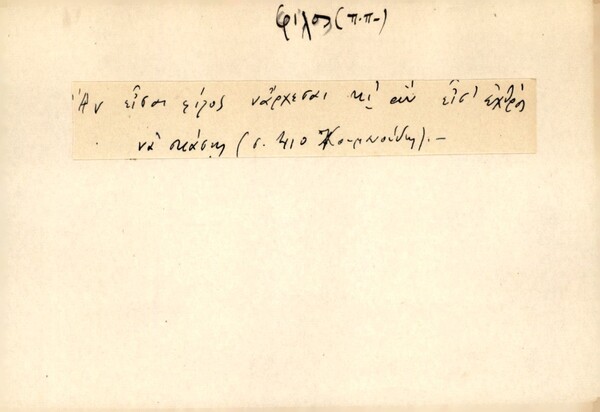 φίλος (π.π.)
Ἂν εἶσαι φίλος νἄρχεσαι κι̯ ἂν εἶσ' ἐχθρὸς
νὰ σκάσῃς (σ. 410 Κουρκούδης).—